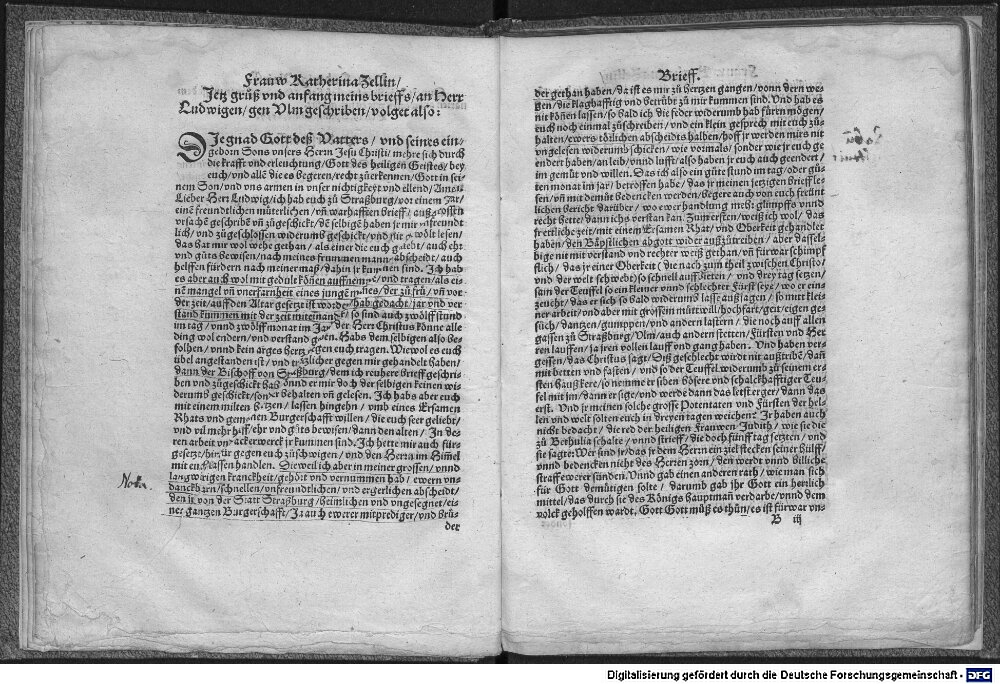 Frauw Katherina Zellin/
Jetz grüß vnd anfang meins brieffs/ an Herr
Ludwigen/ gen Vlm geschriben/ volget also:
DIe gnad Gott deß Vatters/ vnd seines ein-
gebornen Sons vnsers Herrn Jesu Christi/ mehre sich durch
die krafft vnd erleuchtung/ Gott des heiligen Geistes/ bey
euch/ vnd alle die es begeren/ recht zů erkennen/ Gott in sei-
nem Son/ vnd vns armen in vnser nichtigkeyt vnd ellend/ Amen.
Lieber Herr Ludwig/ ich hab euch zů Straßburg/ vor einem Jar/
einē freundtlichen můterlichen/ vñ warhafften brieff/ auß
vrsachē geschribē vñ zůgeschickt/ dē selbigē haben jr mir vnfreundt
lich/ vnd zůgeschlossen widerumb geschickt/ vnd nit wölt lesen/
das hat mir wol wehe gethan/ als einer die euch geliebt/ auch ehr
vnd gůts bewisen/ nach meines frummen mann abscheidt/ auch
helffen fürdern nach meiner maß/ dahin jr kummen sind. Ich hab
es aber auch wol mit gedult köñen auffnemen/ vnd tragen/ als ei-
nē mangel vñ vnerfarnheit eines jungē manes/ der zů frü/ vñ vor
der zeit/ auff den Altar gesetzt ist worden/ hab gedacht/ jar vnd ver-
stand kummen mit der zeit miteinander/ so sind auch zwölff stund
im tag/ vnnd zwölff monat im Jar/ der Herr Christus könne alle
ding wol endern/ vnd verstand geben. Habs dem selbigen also be-
folhen/ vnnd kein arges hertz gegen euch tragen. Wiewol es euch
übel angestanden ist/ vnd gegen mir gehandelt haben/
dann der Bischoff von Straßburg/ dem ich reühere brieff geschri-
ben vnd zůgeschickt hab/ vnnd er mir doch der selbigen keinen wi-
derumb geschickt/ sonder behalten vñ gelesen. Ich habs aber euch
mit einem milten hertzen/ lassen hingehn/ vmb eines Ersamen
Rhats vnd gemeynen Burgerschafft willen/ die euch seer geliebt/
vnd vil mehr hilff/ ehr vnd gůts bewisen/ dann den alten/ In de-
ren arbeit vnd ackerwerck jr kummen sind. Ich hette mir auch für-
gesetzt/ hinfür gegen euch zů schwigen/ vnd den Herrn im Him̃el
mit euch lassen handlen. Die weil ich aber in meiner grossen/ vnnd
langwirigen kranckheit/ gehört vnd vernummen hab/ ewern vn-
danckbarn/ schnellen/ vnfreundtlichen/ vnd ergerlichen abscheidt/
den jr von der Statt Straßburg/ heimlichen vnd vngesegnet/ ei-
ner gantzen Burgerschafft/ Ja auch ewerer mitprediger/ vnd brů-
der
Nota
Brieff.
der gethan haben/ da ist es mir zů hertzen gangen/ vonn dern we-
gen/ die klaghafftig vnd betrübt zů mir kummen sind. Vnd hab es
nit köñen lassen/ so bald ich die feder widerumb hab fürn mögen/
euch noch einmal zů schreiben/ vnd ein klein gesprech mit euch zů-
halten/ ewers tödlichen abscheidts halben/ hoff jr werden mirs nit
vngelesen widerumb schicken/ wie vormals/ sonder wie jr euch ge
endert haben/ an leib/ vnnd lufft/ also haben jr euch auch geendert/
im gemüt vnd willen. Das ich also ein gůte stund im tag/ oder gů-
ten monat im jar/ betroffen habe/ das jr meinen jetzigen brieff le-
sen/ vñ mit demůt bedencken werden/ begere auch von euch freünt
lichen bericht darüber/ wo ewer handlung meß: glimpffs vnnd
recht hette/ dann ichs verstan kan. Zum ersten/ weiß ich wol/ das
freitliche zeit/ mit einem Ersamen Rhat/ vnd Oberkeit gehandlet
haben/ den Bäpstlichen abgott wider auß zůtreiben/ aber das sel-
bige nit mit verstand vnd rechter weiß gethan/ vñ fürwar schimpf
flich/ das jr einer Oberkeit (die nach zům theil zwischen Christo/
vnd der welt schwebt) so schnell auffbieten/ vnd drey tag setzen/
sam der Teuffel so ein kleiner vnnd schlechter Fürst seye/ wo er ein
feucht/ das er sich so bald widerumb lasse außjagen/ so mit klei-
ner arbeit/ vnd aber mit grossem můtwill/ hochfart/ geit/ eigen ge-
sůch/ dantzen/ gumppen/ vnd andern lastern/ die noch auff allen
gassen zů Straßburg/ Vlm/ auch andern stetten/ Fürsten vnd Her
ren lauffen/ ja jren vollen lauff vnd gang haben. Vnd haben ver-
gessen/ das Christus sagt/ Diß geschlecht würdt nit außtribē/ dañ
mit betten vnd fasten/ vnd so der Teuffel widerumb zů seinem er
sten hauß kere/ so nemme er siben bösere vnd schalckhafftiger Teu-
fel mit jm/ dann er sige/ vnd werde dann das letst erger/ dann das
erst. Vnd jr meinen solche grosse Potentaten vnd Fürsten der hel-
len vnd welt solten euch in dreyen tagen weichen: Ir haben auch
nicht bedacht/ die red der heiligen Frauwen Judith/ wie sie die
zů Bethulia schalte/ vnnd strieff/ die doch fünff tag setzten/ vnd
sie sagte: Wer sind jr/ das jr dem Herrn ein ziel stecken seiner hülff/
vnnd bedencken nicht des Herren zorn/ den werdt vnnd billiche
straff ewerer sünden. Vnnd gab einen andern rath/ wie man sich
für Gott demütigen solte/ darumb gab jhr Gott ein herrlich
mittel/ das durch sie des Königs hauptmañ verdarbe/ vnnd dem
volck geholffen wardt. Gott Gott můß es thůn/ es ist fürwar vn-
B iij
Digitalisierung gefördert durch die Deutsche Forschungsgemeinschaft - DFG